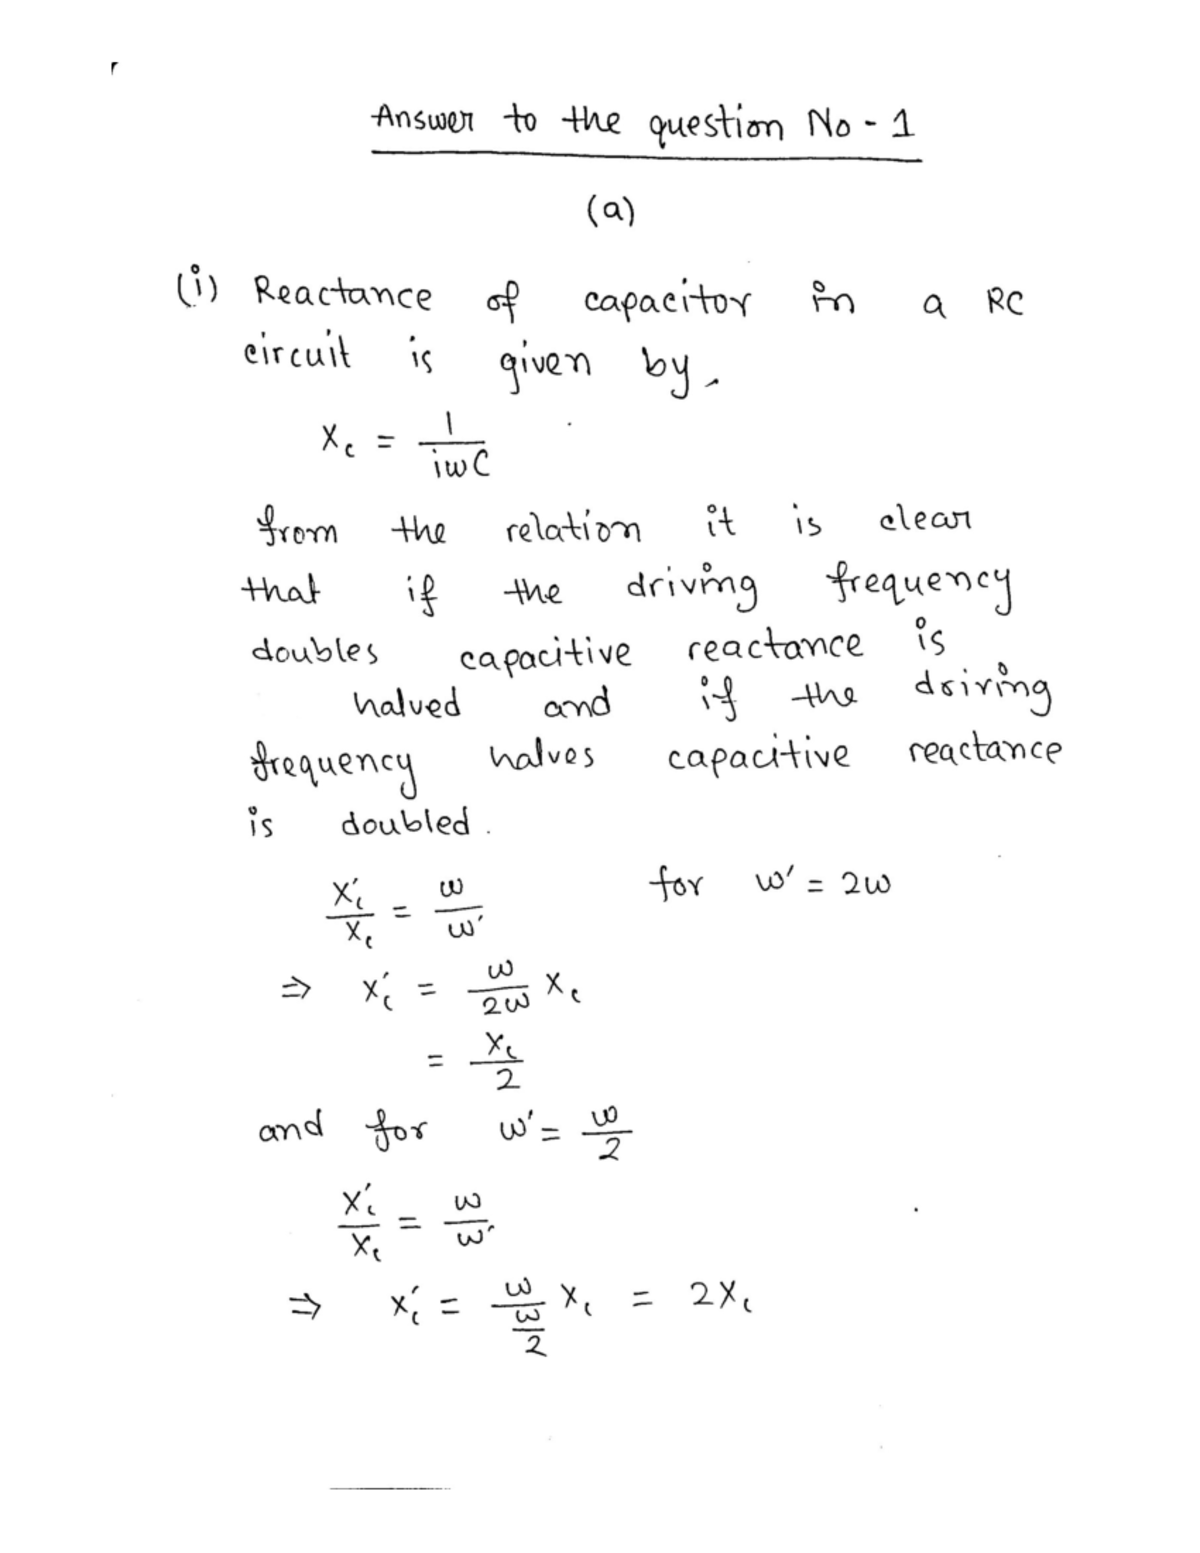 Answer to the question No - 1
(a)
(i) Reactance of capacitor in a RC
circuit is given by,
Xc = 1/iωC
from the relation it is clear
that if the driving frequency
doubles capacitive reactance is
halved and if the driving
frequency halves capacitive reactance
is doubled.
Xc'/Xc = ω/ω' for ω' = 2ω
⇒ Xc' = ω/2ω Xc
= Xc/2
and for ω' = ω/2
Xc'/Xc = ω/ω'
⇒ Xc' = ω/(ω/2) Xc = 2Xc